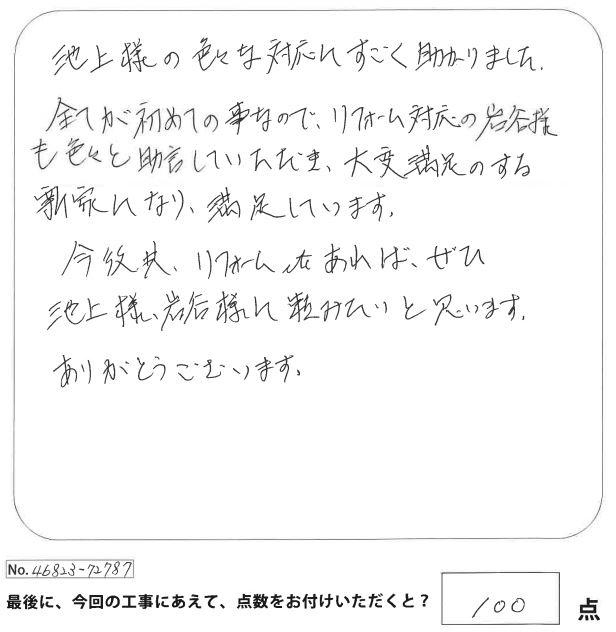 池上様の色々な対応にすごく助かりました。
全てが初めての事なので、リフォーム対応の岩谷様
も色々と助言していただき、大変満足のする
新家になり、満足しています。
今後共、リフォーム等あれば、ぜひ
池上様、岩谷様に頼みたいと思います。
ありがとうございます。
No. 46823-72787
最後に、今回の工事にあえて、点数をお付けいただくと？ 100 点